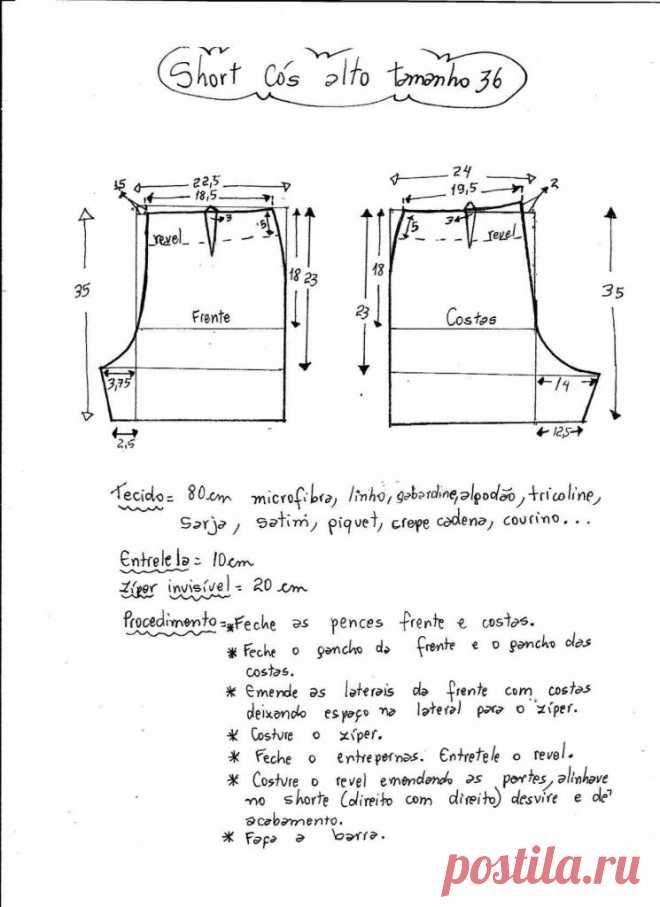 Short Cós alto tamanho 36
22,5
18,5
1,5
3
5
revel
18
23
35
Frente
3,75
2,5
24
19,5
2
5
3
revel
18
23
35
Costas
14
12,5
Tecido = 80cm microfibra, linho, gabardine, algodão, tricoline,
sarja, satim, piquet, crepe cadena, courino...
Entretela = 10cm
Zíper invisível = 20 cm
Procedimento = * Feche as pences frente e costas.
* Feche o gancho da frente e o gancho das
costas.
* Emende as laterais da frente com costas
deixando espaço na lateral para o zíper.
* Costure o zíper.
* Feche o entrepernas. Entretele o revel.
* Costure o revel emendando as partes, alinhave
no shorte (direito com direito) desvire e dê
acabamento.
* Faça a barra.
postila.ru